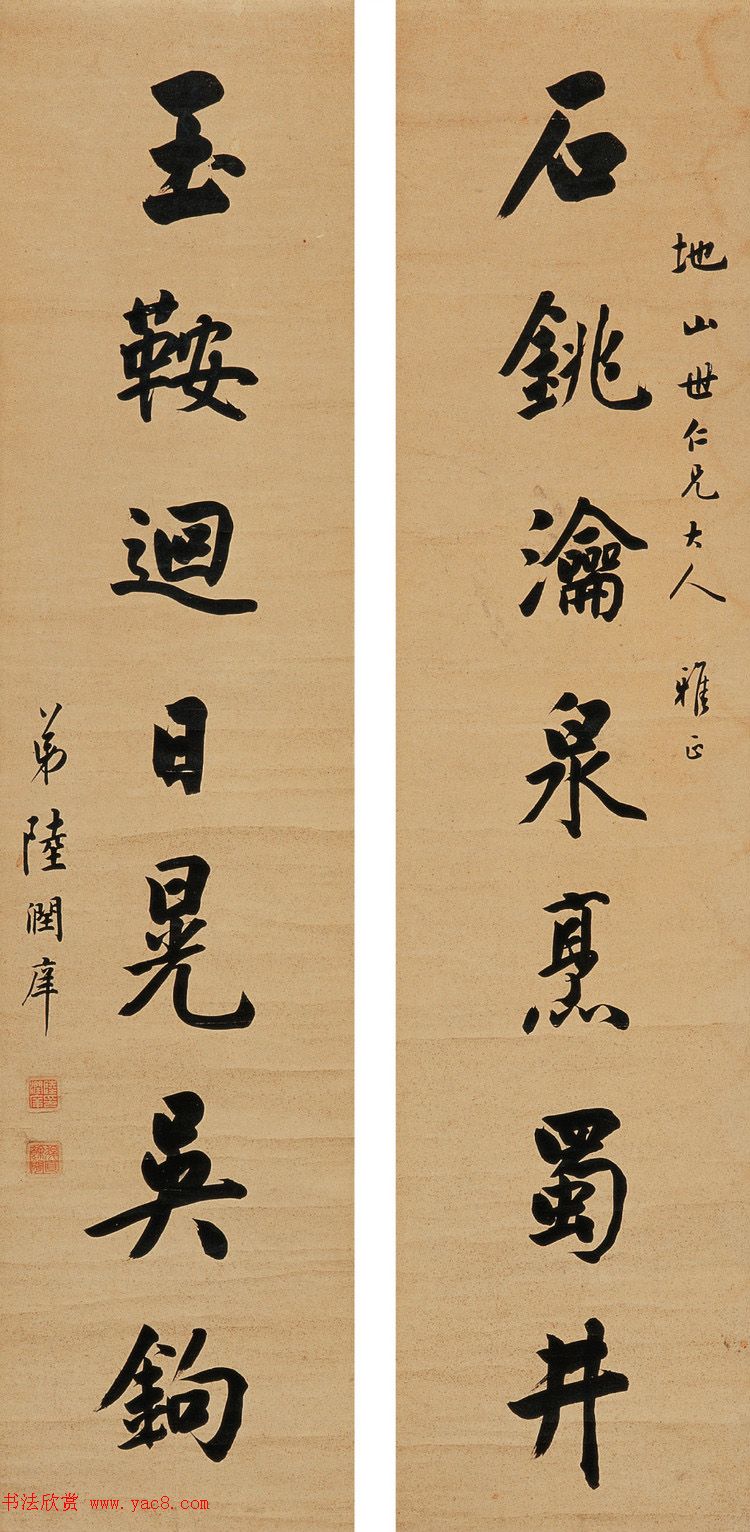 石銚瀹泉烹蜀井
地山世仁兄大人 雅正
玉鞍迴日晃吳鉤
弟陸潤庠
书法欣赏 www.yac8.com